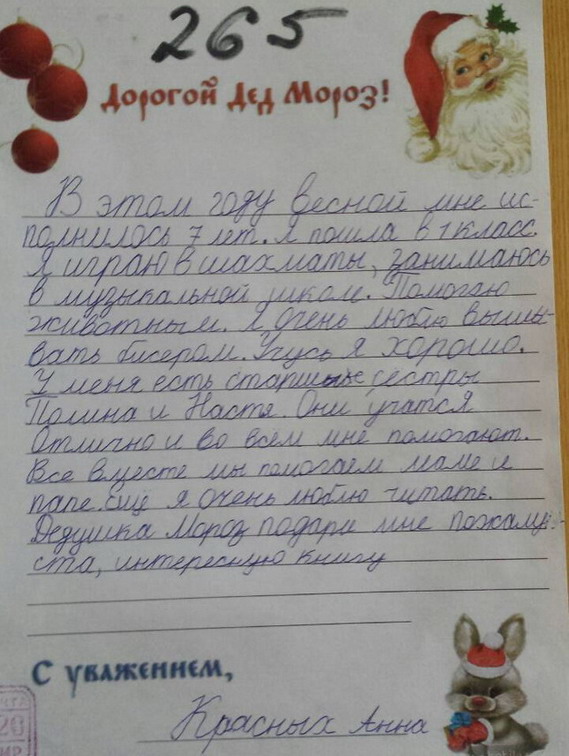 265
Дорогой Дед Мороз!
В этом году весной мне ис-
полнилось 7 лет. Я пошла в 1 класс.
Я играю в шахматы, занимаюсь
в музыкальной школ. Помогаю
животным. Я очень люблю выши-
вать бисером. Учусь я хорошо.
У меня есть старшые сёстры
Полина и Настя. Они учатся
Отлично и во всем мне помогают.
Все вместе мы помогаем маме и
папе. Ещё я очень люблю читать.
Дедушка Мороз подари мне пожалуй-
ста, интересную книгу
С уважением,
Красных Анна
20